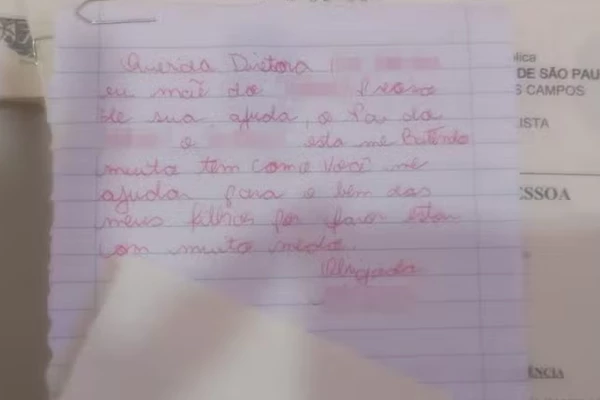 Querida Diretora
eu mãe do preciso
de sua ajuda, o Pai da
o esta me Batendo
muito tem como você me
ajudar para o bem das
meus filhos por favor estou
com muito medo.
Obrigada
ública
DE SÃO PAU
S CAMPOS
ISTA
SSOA
ÊNCIA